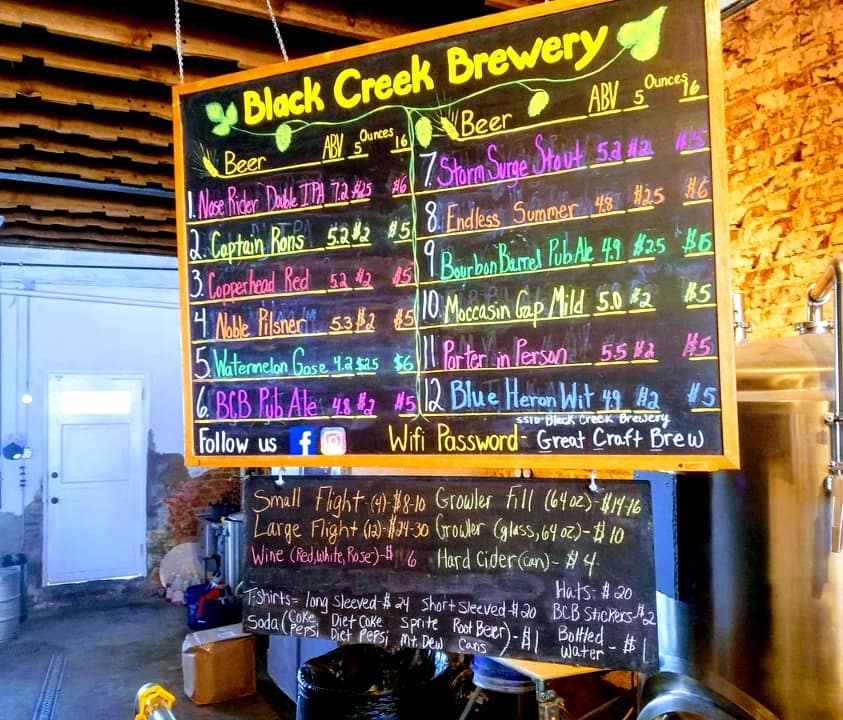 Black Creek Brewery
Beer ABV 5 Ounces 16
1. Nose Rider Double IPA 7.2 $2.5 $6
2. Captain Rons 5.2 $2 $5
3. Copperhead Red 5.2 $2 $5
4 Noble Pilsner 5.3 $2 $5
5. Watermelon Gose 4.2 $2.5 $6
6. BCB Pub Ale 4.8 $2 $5
Beer ABV 5 Ounces 16
7. Storm Surge Stout 5.2 $2 $5
8. Endless Summer 4.8 $2.5 $6
9 Bourbon Barrel Pub Ale 4.9 $2.5 $6
10. Moccasin Gap Mild 5.0 $2 $5
11 Porter in Person 5.5 $2 $5
12 Blue Heron Wit 4.9 $2 $5
SSID-Black Creek Brewery
Follow us f Wifi Password- Great Craft Brew
Small Flight-(4)-$8-10 Growler Fill (64oz)-$14-16
Large Flight (12)-$24-30 Growler (glass, 64oz.)-$10
Wine (Red, White, Rose)-$6 Hard Cider (can)- $4
Hats- $20
T-shirts= long Sleeved-$24 Short Sleeved-$20 BCB Stickers-$2
Soda (Coke Diet Coke Sprite Root Beer)-$1 Bottled
Pepsi Diet Pepsi Mt. Dew Cans Water - $1